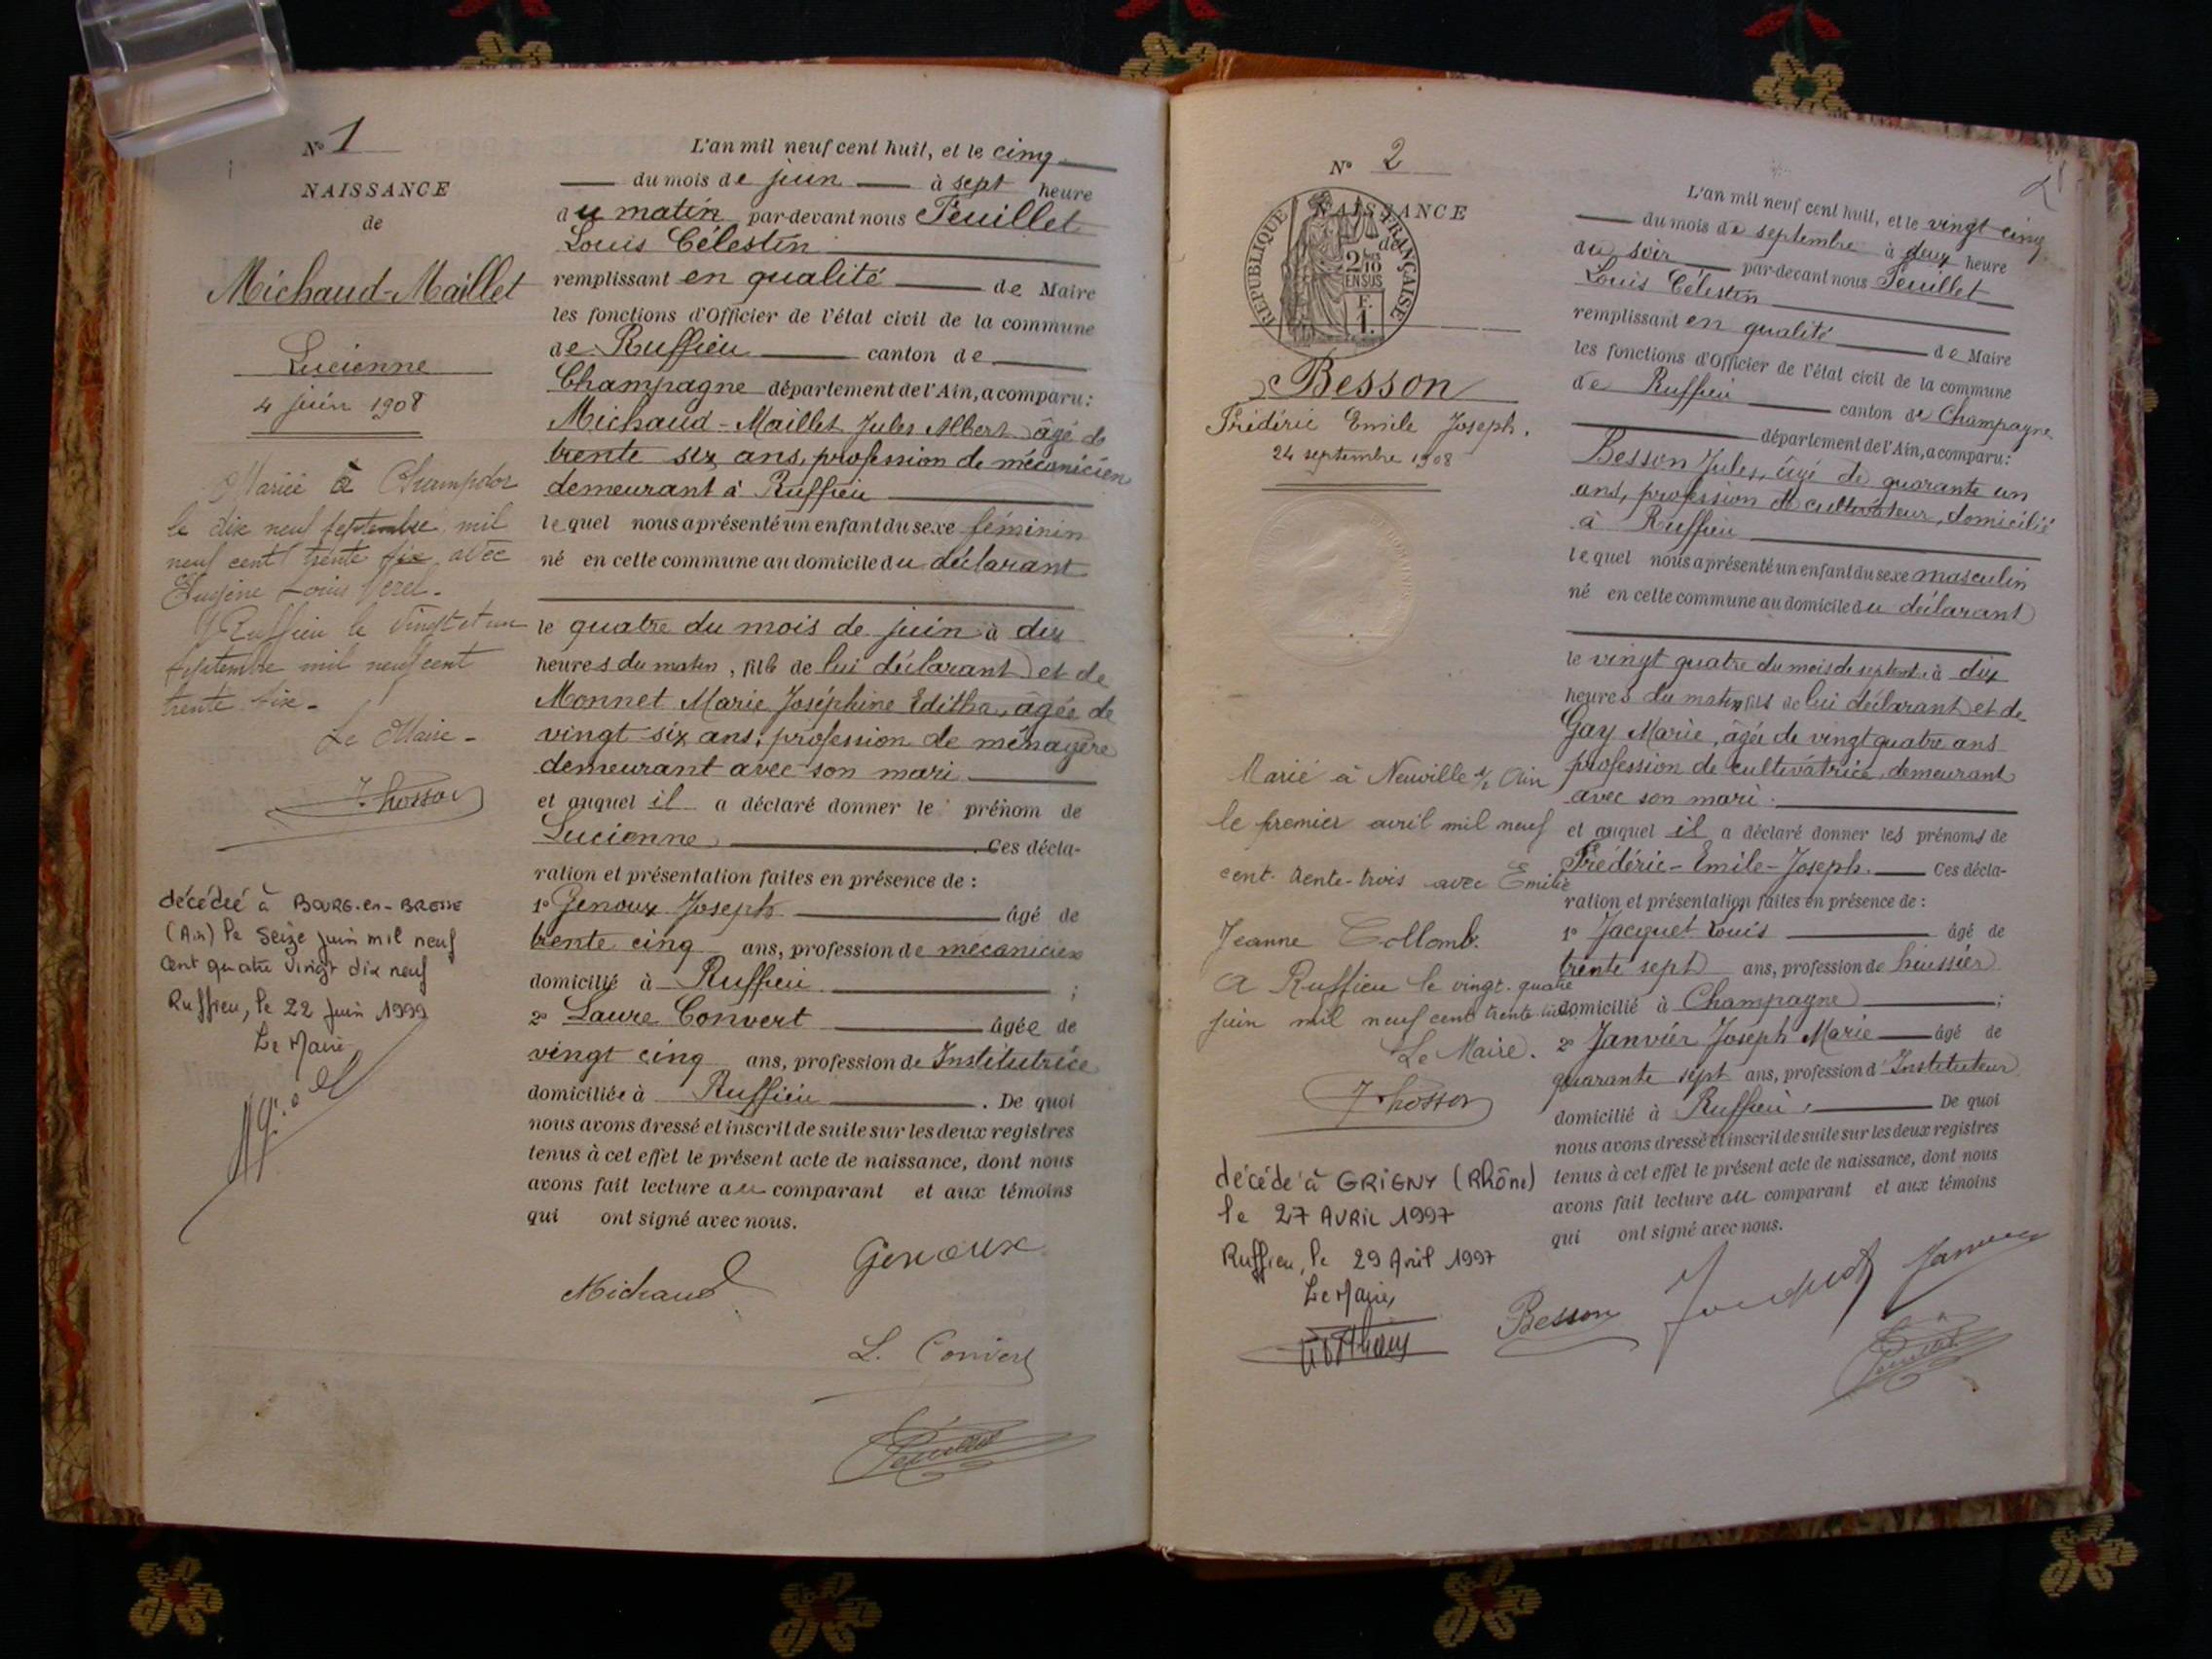 N° 1
NAISSANCE
de
Michaud-Maillet
Lucienne
4 juin 1908
Mariée à Champdor
le dix neuf septembre mil
neuf cent trente six avec
Eugène Louis
Ruffieu le vingt et un
septembre mil neuf cent
trente six.
Le Maire.
décédée à BOURG-en-BRESSE
(Ain) le seize juin mil neuf
cent quatre vingt dix neuf
Ruffieu, le 22 juin 1999
Le Maire
L'an mil neuf cent huit, et le cinq
du mois de juin à sept heure
du matin par-devant nous Feuillet
Louis Célestin
remplissant en qualité de Maire
les fonctions d'Officier de l'état civil de la commune
de Ruffieu canton de
Champagne département de l'Ain, a comparu:
Michaud-Maillet Jules Albert âgé de
trente six ans, profession de mécanicien
demeurant à Ruffieu
lequel nous a présenté un enfant du sexe féminin
né en cette commune au domicile du déclarant
le quatre du mois de juin à dix
heures du matin, fils de lui déclarant et de
Monnet Marie Joséphine Editha, âgée de
vingt six ans, profession de ménagère
demeurant avec son mari
et auquel il a déclaré donner le prénom de
Lucienne. Ces décla-
ration et présentation faites en présence de :
1° Genoux Joseph âgé de
trente cinq ans, profession de mécanicien
domicilié à Ruffieu ;
2° Laure Convert âgée de
vingt cinq ans, profession de Institutrice
domiciliée à Ruffieu. De quoi
nous avons dressé et inscrit de suite sur les deux registres
tenus à cet effet le présent acte de naissance, dont nous
avons fait lecture au comparant et aux témoins
qui ont signé avec nous.
Michaud
Genoux
L. Convert
Feuillet
N° 2
NAISSANCE
de
REPUBLIQUE FRANÇAISE
2/10
EN SUS
F.
1.
Besson
Frédéric Emile Joseph.
24 septembre 1908
Marié à Neuville s/ Ain
le premier avril mil neuf
cent trente-trois avec Emilie
Jeanne Collomb.
A Ruffieu le vingt-quatre
juin mil neuf cent trente-trois
Le Maire.
décédé à GRIGNY (Rhône)
le 27 AVRIL 1997
Ruffieu, le 29 Avril 1997
Le Maire,
L'an mil neuf cent huit, et le vingt cinq
du mois de septembre à deux heure
du soir par-devant nous Feuillet
Louis Célestin
remplissant en qualité de Maire
les fonctions d'Officier de l'état civil de la commune
de Ruffieu canton de Champagne
département de l'Ain, a comparu:
Besson Jules, âgé de quarante un
ans, profession de cultivateur, domicilié
à Ruffieu
lequel nous a présenté un enfant du sexe masculin
né en cette commune au domicile du déclarant
le vingt quatre du mois de septemb. à dix
heures du matin fils de lui déclarant et de
Gay Marie, âgée de vingt quatre ans
profession de cultivatrice, demeurant
avec son mari.
et auquel il a déclaré donner les prénoms de
Frédéric-Emile-Joseph. Ces décla-
ration et présentation faites en présence de :
1° Jacquet Louis âgé de
trente sept ans, profession de huissier
domicilié à Champagne ;
2° Janvier Joseph Marie âgé de
quarante sept ans, profession d'Instituteur
domicilié à Ruffieu. De quoi
nous avons dressé et inscrit de suite sur les deux registres
tenus à cet effet le présent acte de naissance, dont nous
avons fait lecture au comparant et aux témoins
qui ont signé avec nous.
Besson Jacquet Janvier
Feuillet